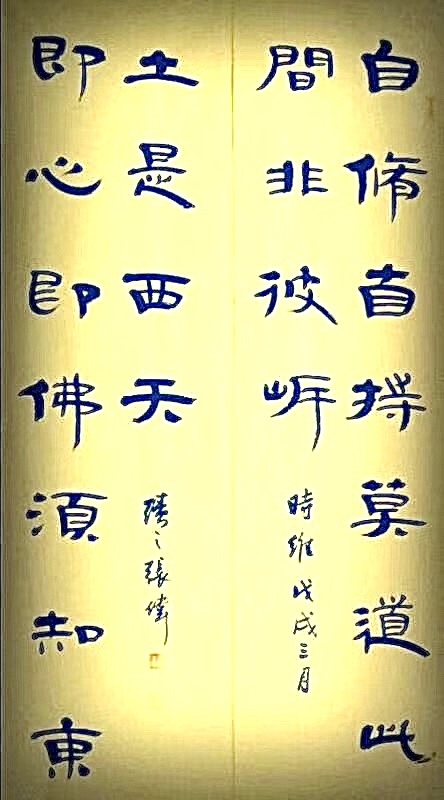 自脩自持莫道此
間非彼岸
時維戊戌三月
即心即佛須知東
土是西天
之張偉